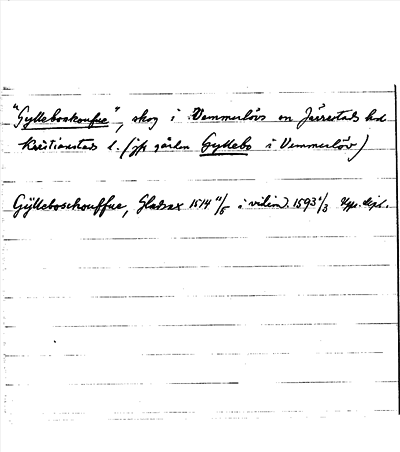 "Gylleboskoufue", skog i Vemmerlövs sn Järrestads hd
Kristianstads l. (jfr gården Gyllebo i Vemmerlöv)
Gÿlleboschouffue, Gladsax 1514 11/5 i vidim. 1593 1/3 Upps. dipl.